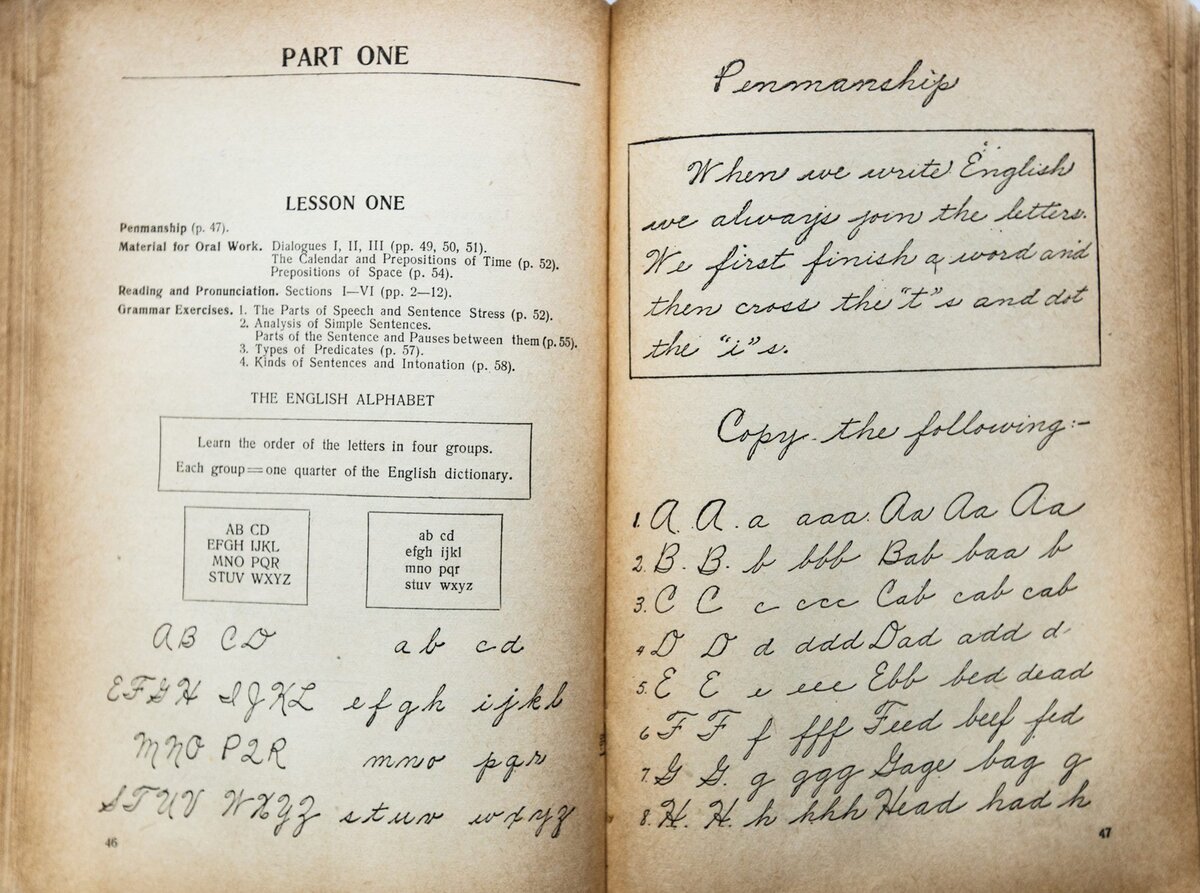 PART ONE
LESSON ONE
Penmanship (p. 47).
Material for Oral Work. Dialogues I, II, III (pp. 49, 50, 51).
The Calendar and Prepositions of Time (p. 52).
Prepositions of Space (p. 54).
Reading and Pronunciation. Sections I—VI (pp. 2—12).
Grammar Exercises. 1. The Parts of Speech and Sentence Stress (p. 52).
2. Analysis of Simple Sentences.
Parts of the Sentence and Pauses between them (p. 55).
3. Types of Predicates (p. 57).
4. Kinds of Sentences and Intonation (p. 58).
THE ENGLISH ALPHABET
Learn the order of the letters in four groups.
Each group=one quarter of the English dictionary.
AB CD
EFGH IJKL
MNO PQR
STUV WXYZ
ab cd
efgh ijkl
mno pqr
stuv wxyz
AB CD ab cd
EFGH IJKL efgh ijkl
MNO PQR mno pqr
STUV WXYZ stuv wxyz
46
Penmanship
When we write English
we always join the letters.
We first finish a word and
then cross the "t"s and dot
the "i"s.
Copy the following:-
1. A. A. a aaa. Aa Aa Aa
2. B. B. b bbb Bab baa b
3. C C c ccc Cab cab cab
4 D D d ddd Dad add d
5. E E e eee Ebb bed dead
6 F F f fff Feed beef fed
7. G G. g ggg Gage bag g
8. H. H. h hhh Head had h
47